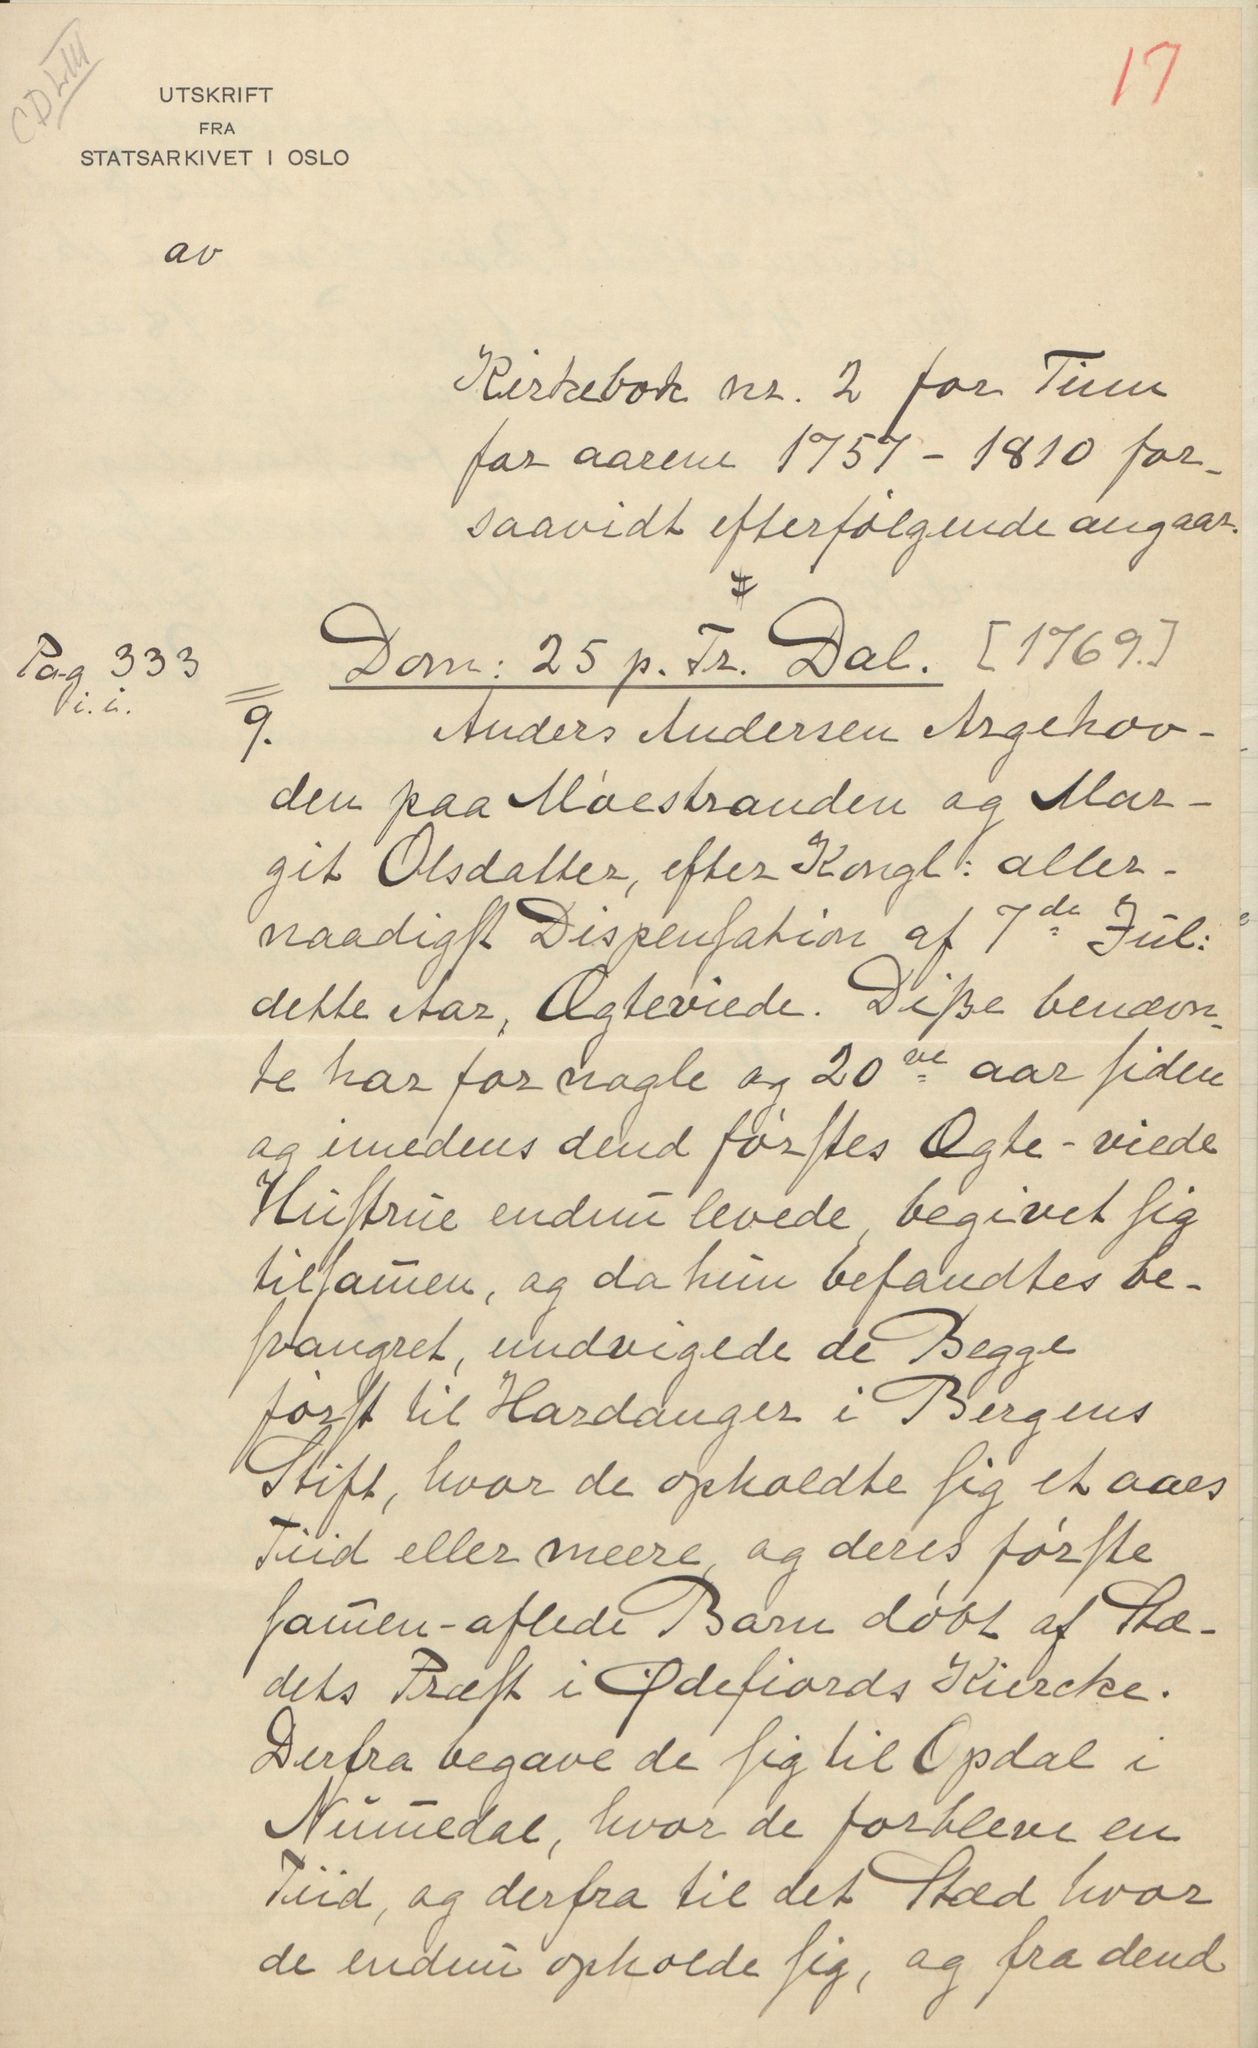 CD LIII
17
UTSKRIFT
FRA
STATSARKIVET I OSLO
av
Kirkebok nr. 2 for Tinn
for aarene 1757 - 1810 for-
saavidt efterfølgende angaar.
Pag 333
i. i.
Dom: 25 p. Tr. Dal. [1769.]
9. Anders Andersen Argehov-
den paa Møestranden og Mar-
git Olsdatter, efter Kongl: aller-
naadigst Dispensation af 7de Jul:
dette Aar, Ægteviede. Diße benævn-
te har for nogle og 20ve aar siden
og imedens dend førstes Ægte-viede
Hustrue endnu levede, begivet sig
tilsam̄en, og da hun befandtes be-
svangret, undvigede de Begge
først til Hardanger i Bergens
Stift, hvor de opholdte sig et aars
Tiid eller meere, og deres første
sam̄en-aflede Barn døbt af Stæ-
dets Præst i Ødefiords Kiercke.
Derfra begave de sig til Opdal i
Num̄edal, hvor de forbleve en
Tiid, og derfra til det Stæd hvor
de endnu opholde sig, og fra dend